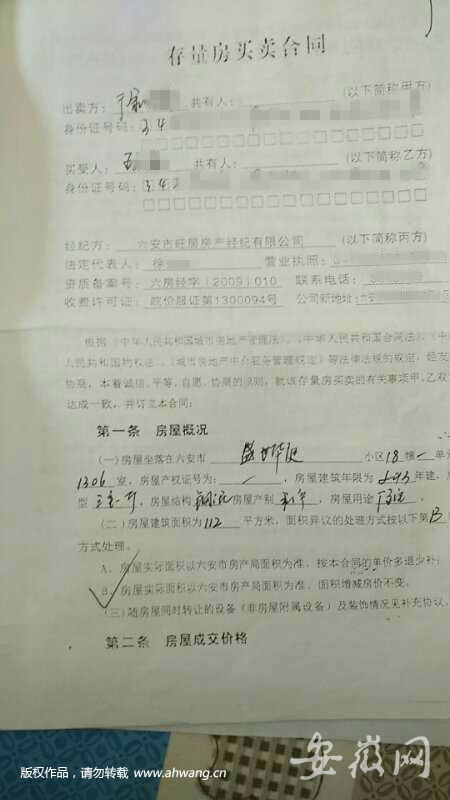 存量房买卖合同
出卖方： 共有人： (以下简称甲方)
身份证号码：34
买受人： 共有人： (以下简称乙方)
身份证号码：342
经纪方：六安市旺居房产经纪有限公司 (以下简称丙方)
法定代表人：徐 营业执照：
资质备案号：六房经字（2009）010 联系电话：
收费许可证：皖价服证第1300094号 公司新地址：六
根据《中华人民共和国城市房地产管理法》、《中华人民共和国合同法》、《中
人民共和国物权法》、《城市房地产中介服务管理规定》等法律法规的规定，经友
协商，本着诚信、平等、自愿、协商的原则，就该存量房买卖的有关事项甲、乙双方
达成一致，并订立本合同：
第一条 房屋概况
(一)房屋坐落在六安市 小区18幢一单元
1306室，房屋产权证号为： ，房屋建筑年限为 年建，房
型 ，房屋结构 房屋产别 ，房屋用途 。
(二)房屋建筑面积为112平方米，面积异议的处理方式按以下第B
方式处理。
A、房屋实际面积以六安市房产局面积为准，按本合同的单价多退少补；
B、房屋实际面积以六安市房产局面积为准，面积增减房价不变。
(三)随房屋同时转让的设备（非房屋附属设备）及装饰情况见补充协议。
第二条 房屋成交价格
安徽网
版权作品，请勿转载 www.ahwang.cn